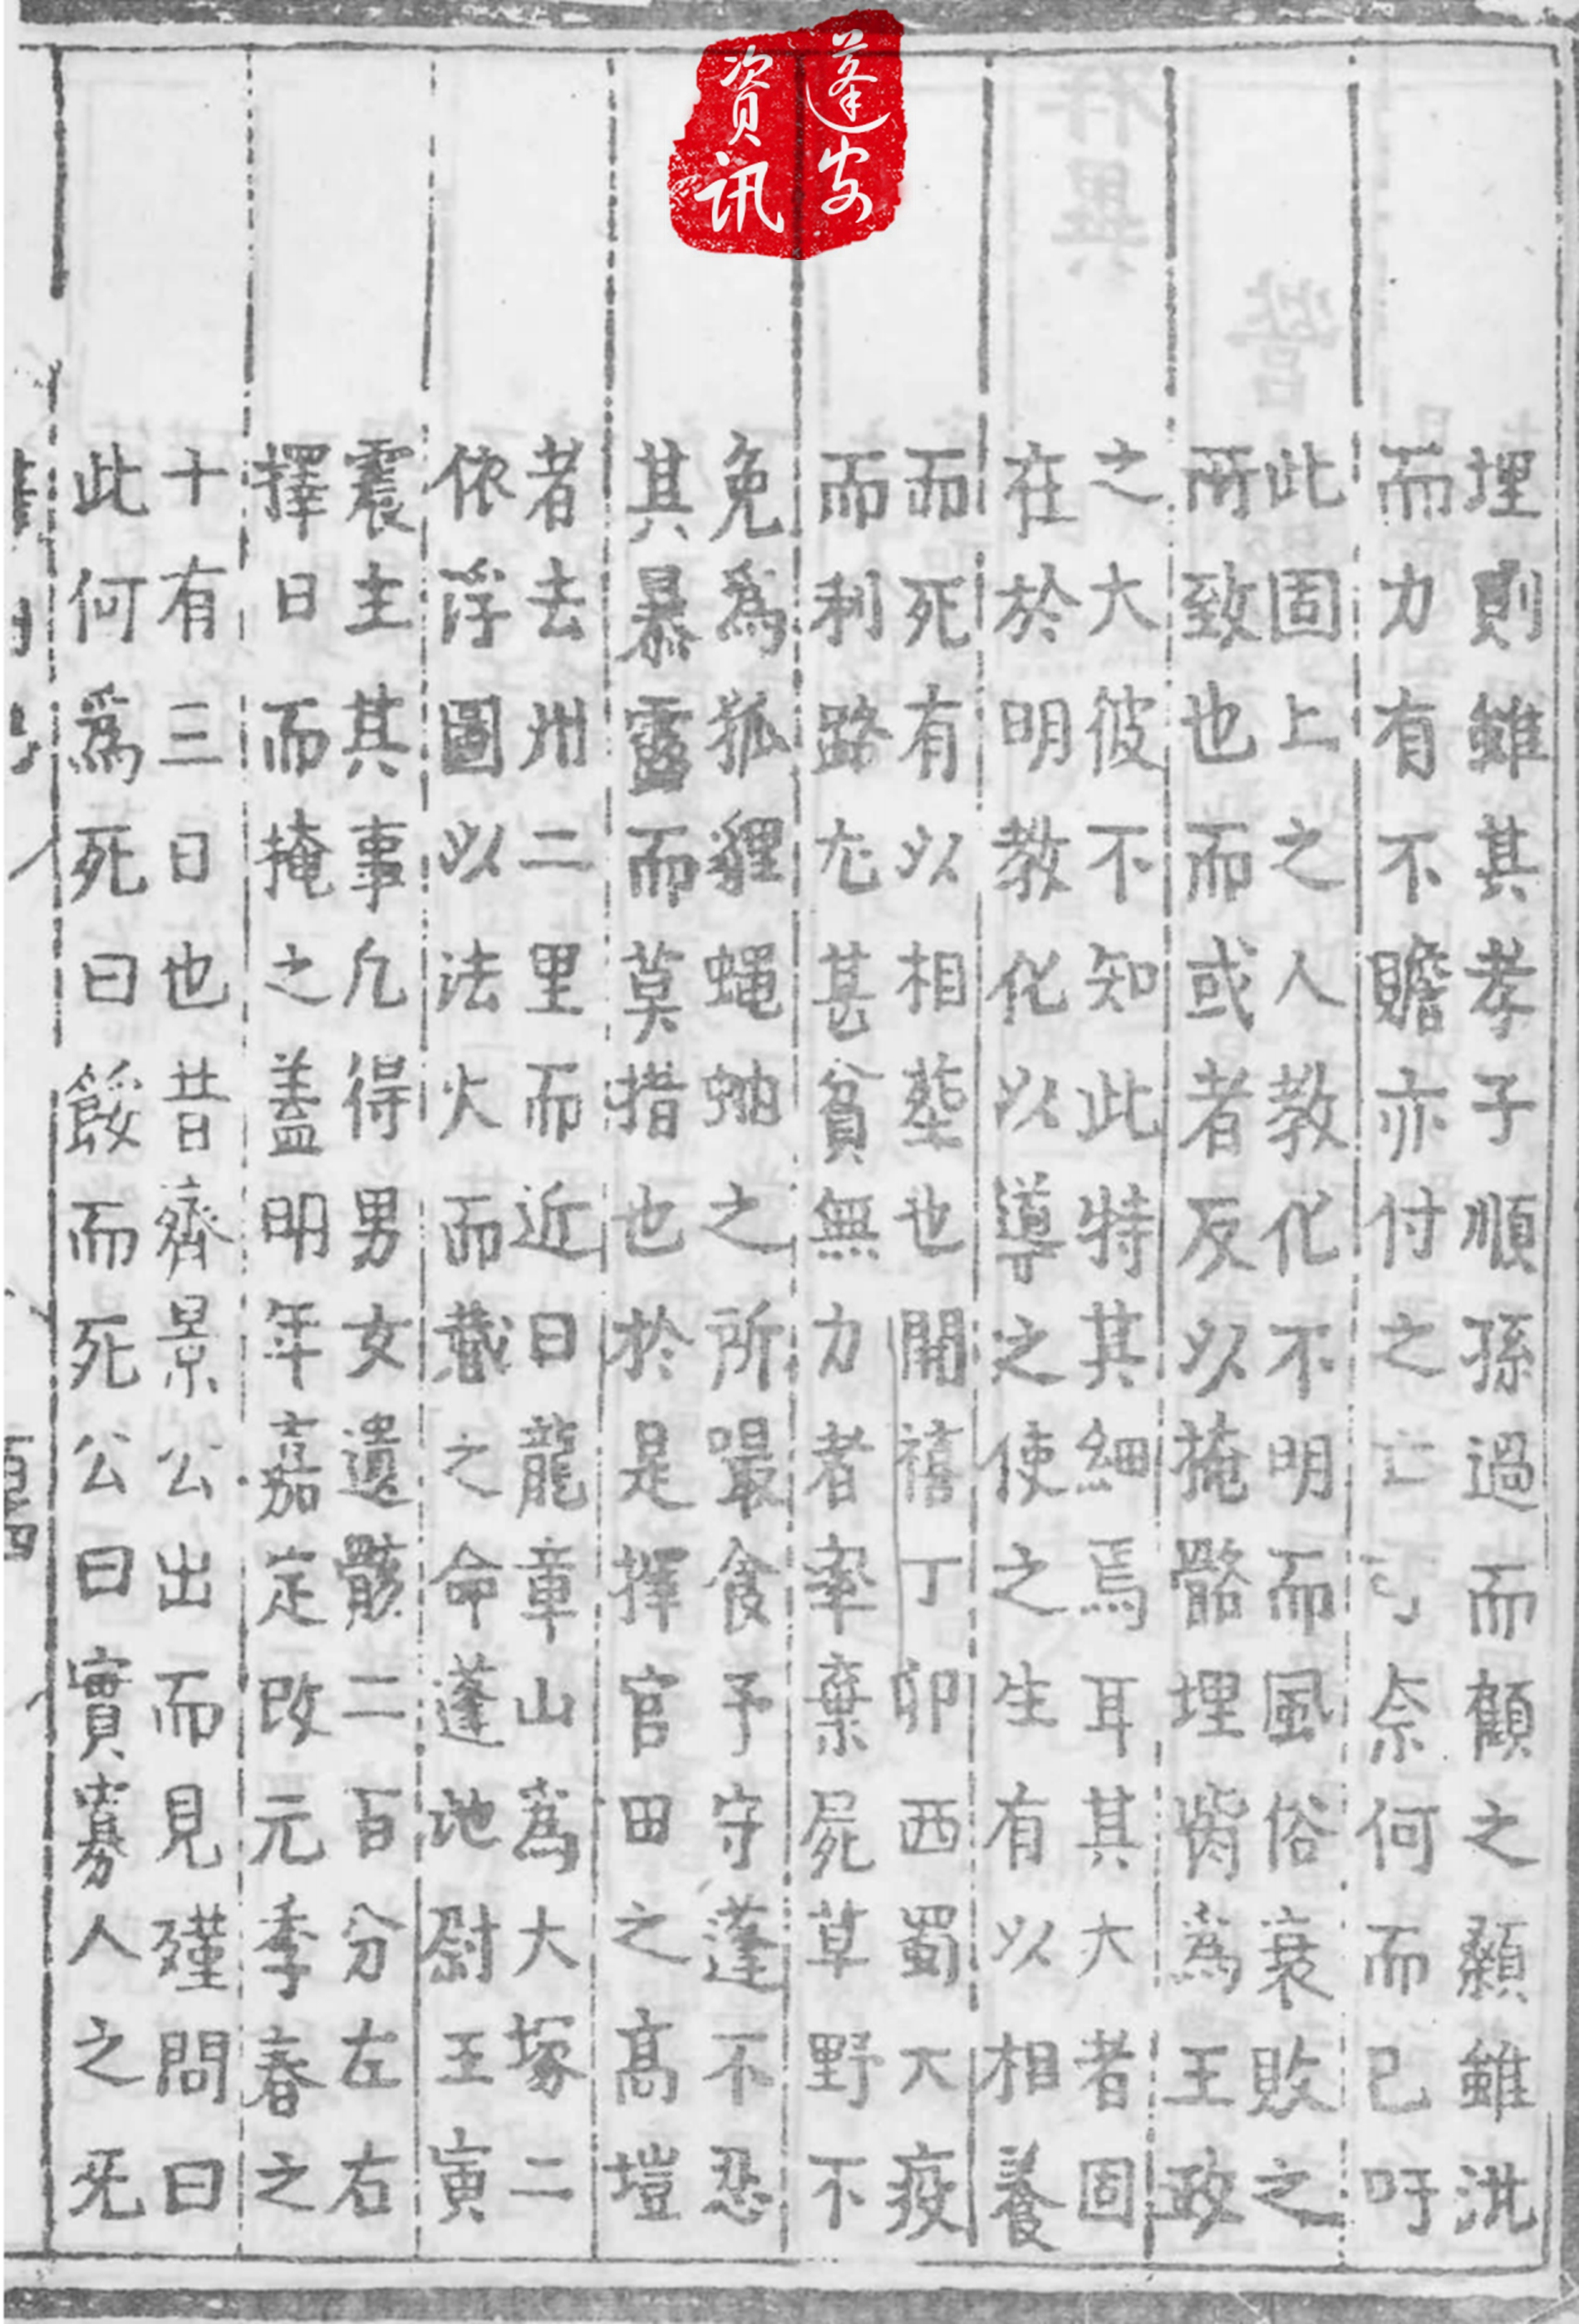 蓬安
資訊
埋則雖其孝子順孫過而顧之顙雖泚
而力有不贍亦付之亡可奈何而已吁
此固上之人教化不明而風俗衰敗之
所致也而或者反以掩骼埋胔為王政
之大彼不知此特其細焉耳其大者固
在於明教化以導之使之生有以相養
而死有以相塟也開禧丁卯西蜀大疫
而利路尤甚貧無力者率棄屍草野不
免為狐狸蠅蚋之所嘬食予守蓬不忍
其暴露而莫措也於是擇官田之高塏
者去州二里而近曰龍章山為大塚二
依浮圖以法火而藏之命蓬池尉王寅
震主其事凢得男女遺骸二百分左右
擇日而掩之盖明年嘉定改元季春之
十有三日也昔齊景公出而見殣問曰
此何爲死曰餒而死公曰實寡人之